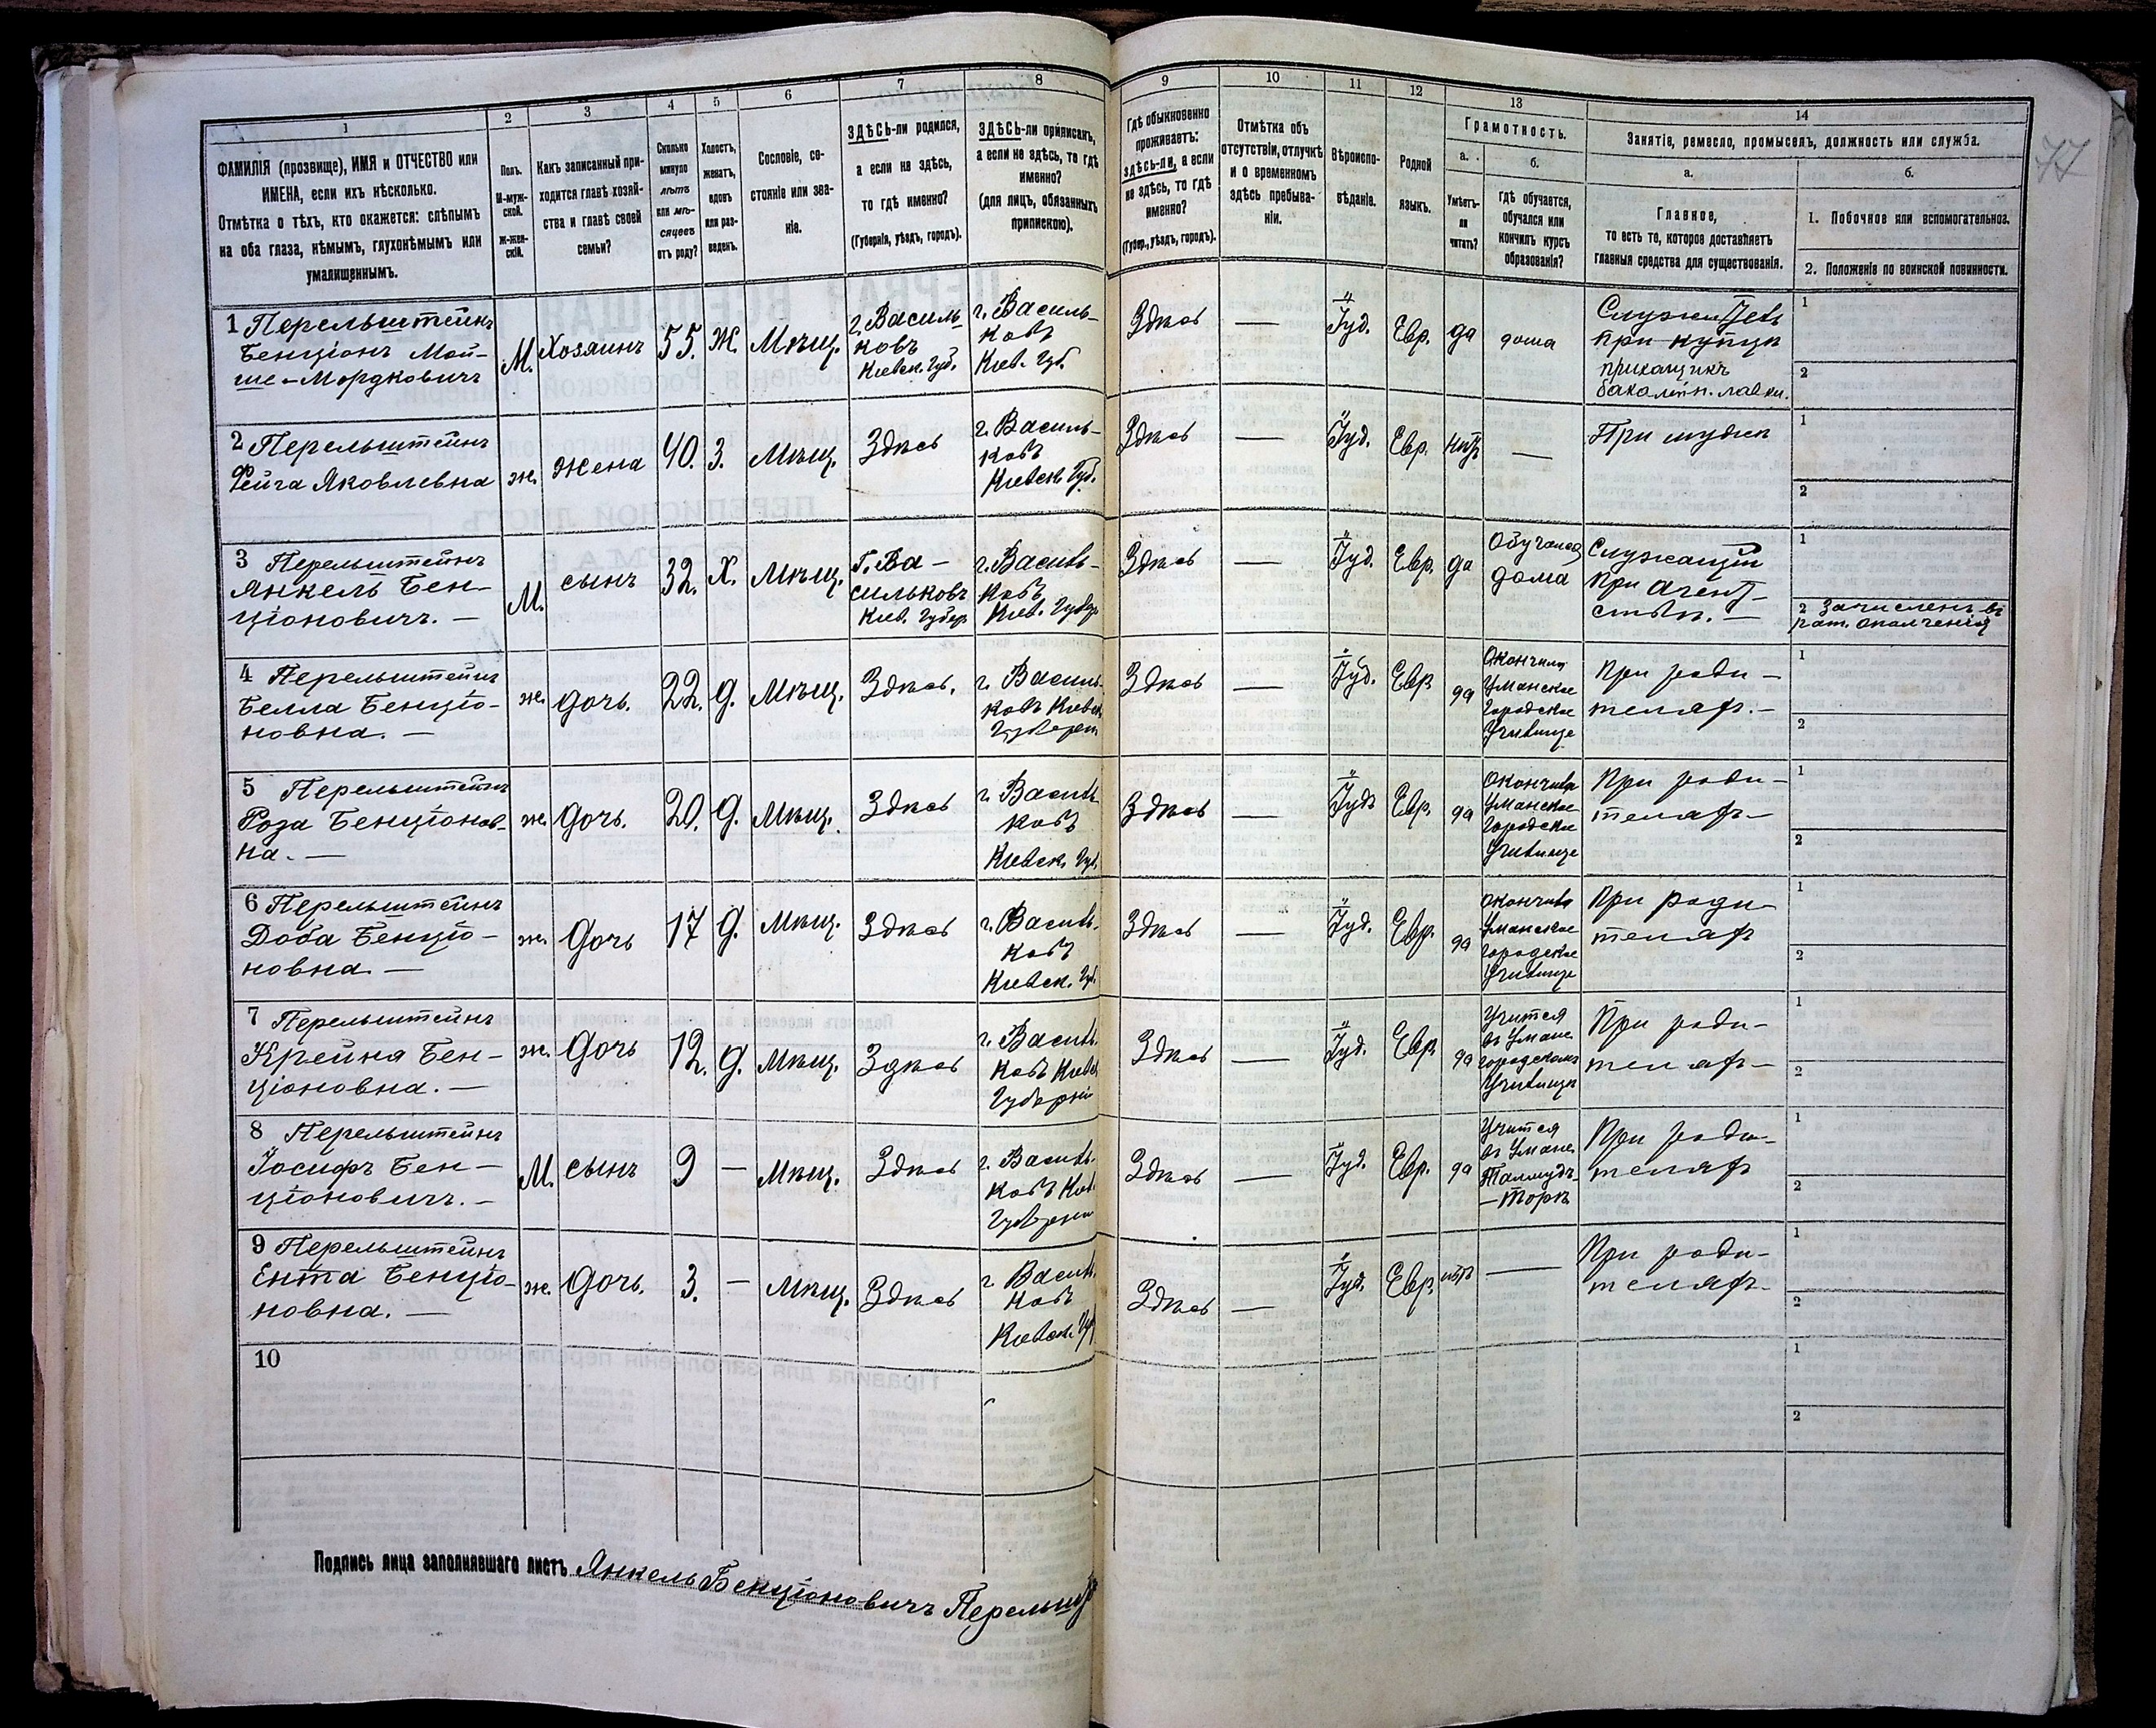 1
ФАМИЛІЯ (прозвище), ИМЯ и ОТЧЕСТВО или
ИМЕНА, если ихъ нѣсколько.
Отмѣтка о тѣхъ, кто окажется: слѣпымъ
на оба глаза, нѣмымъ, глухонѣмымъ или
умалишеннымъ.
2
Полъ.
М-муж-
ской.
Ж-жен-
скій.
3
Какъ записанный при-
ходится главѣ хозяй-
ства и главѣ своей
семьи?
4
Сколько
минуло
лѣтъ
или мѣ-
сяцевъ
отъ роду?
5
Холостъ,
женатъ,
вдовъ
или раз-
веденъ.
6
Сословіе, со-
стояніе или зва-
ніе.
7
ЗДѢСЬ-ли родился,
а если не здѣсь,
то гдѣ именно?
(Губернія, уѣздъ, городъ).
8
ЗДѢСЬ-ли приписанъ,
а если не здѣсь, то гдѣ
именно?
(для лицъ, обязанныхъ
припискою).
9
Гдѣ обыкновенно
проживаетъ:
здѣсь-ли, а если
не здѣсь, то гдѣ
именно?
(Губер., уѣздъ, городъ).
10
Отмѣтка объ
отсутствіи, отлучкѣ
и о временномъ
здѣсь пребыва-
ніи.
11
Вѣроиспо-
вѣданіе.
12
Родной
языкъ.
13
Грамотность.
а.
Умѣетъ-
ли
читать?
б.
Гдѣ обучается,
обучался или
кончилъ курсъ
образованія?
14
Занятіе, ремесло, промыселъ, должность или служба.
а.
Главное,
то есть то, которое доставляетъ
главныя средства для существованія.
б.
1. Побочное или вспомогательное.
2. Положеніе по воинской повинности.
77
1 Перельштейнъ
Бенціонъ Мой-
ше-Мордковичъ
М.
Хозяинъ
55.
Ж.
Мѣщ.
г. Василь-
ковъ
Кіевск. Губ.
г. Василь-
ковъ
Кіев. Губ.
Здѣсь
—
Іуд.
Евр.
да
дома
Служитель
при купцѣ
прикащикъ
бакалейн. лавки.
1
2
2 Перельштейнъ
Фейга Яковлевна
ж.
жена
40.
З.
Мѣщ.
Здѣсь
г. Василь-
ковъ
Кіевск. Губ.
Здѣсь
—
Іуд.
Евр.
нѣтъ
—
При мужѣ
1
2
3 Перельштейнъ
Янкель Бен-
ціоновичъ. —
М.
сынъ
32.
Х.
Мѣщ.
Г. Ва-
сильковъ
Кіев. Губер.
г. Василь-
ковъ
Кіев. Губер
Здѣсь
—
Іуд.
Евр.
да
Обучался
дома
Служащій
при агент-
ствѣ. —
1
2 Зачисленъ въ
рат. ополченія
4 Перельштейнъ
Белла Бенціо-
новна. —
ж.
дочь.
22.
д.
Мѣщ.
Здѣсь.
г. Василь-
ковъ Кіевск
Губерніи
Здѣсь
—
Іуд.
Евр
да
Окончила
Уманское
Городское
Училище
При роди-
теляхъ. —
1
2
5 Перельштейнъ
Роза Бенціонов-
на. —
ж.
дочь.
20.
д.
Мѣщ.
Здѣсь
г. Василь-
ковъ
Кіевск. Губ.
Здѣсь
—
Іудъ
Евр.
да
Окончила
Уманское
Городское
Училище
При роди-
теляхъ —
1
2
6 Перельштейнъ
Доба Бенціо-
новна —
ж.
дочь
17
д.
Мѣщ.
Здѣсь
г. Василь-
ковъ
Кіевск. Губ.
Здѣсь
—
Іуд.
Евр.
да
окончила
Уманское
городское
Училище
При роди-
теляхъ
1
2
7 Перельштейнъ
Крейня Бен-
ціоновна. —
ж.
дочь
12.
д.
Мѣщ.
Здѣсь
г. Василь-
ковъ Кіевск
Губерніи
Здѣсь
—
Іуд.
Евр
да
Учится
въ Умане
городскомъ
Училищѣ
При роди-
теляхъ —
1
2
8 Перельштейнъ
Іосифъ Бен-
ціоновичъ. —
М.
сынъ
9
—
Мѣщ.
Здѣсь
г. Василь-
ковъ Кіев.
Губерніи
Здѣсь
—
Іуд.
Евр.
да
Учится
въ Умане.
Талмудъ-
— Торѣ
При роди-
теляхъ
1
2
9 Перельштейнъ
Ента Бенціо-
новна. —
ж.
дочь.
3.
—
Мѣщ.
Здѣсь
г Василь-
ковъ
Кіевск. Губ
Здѣсь
—
Іуд.
Евр.
нѣтъ
—
При роди-
теляхъ-
1
2
10
1
2
Подпись лица заполнявшаго листъ Янкель Бенціоновичъ Перельшт